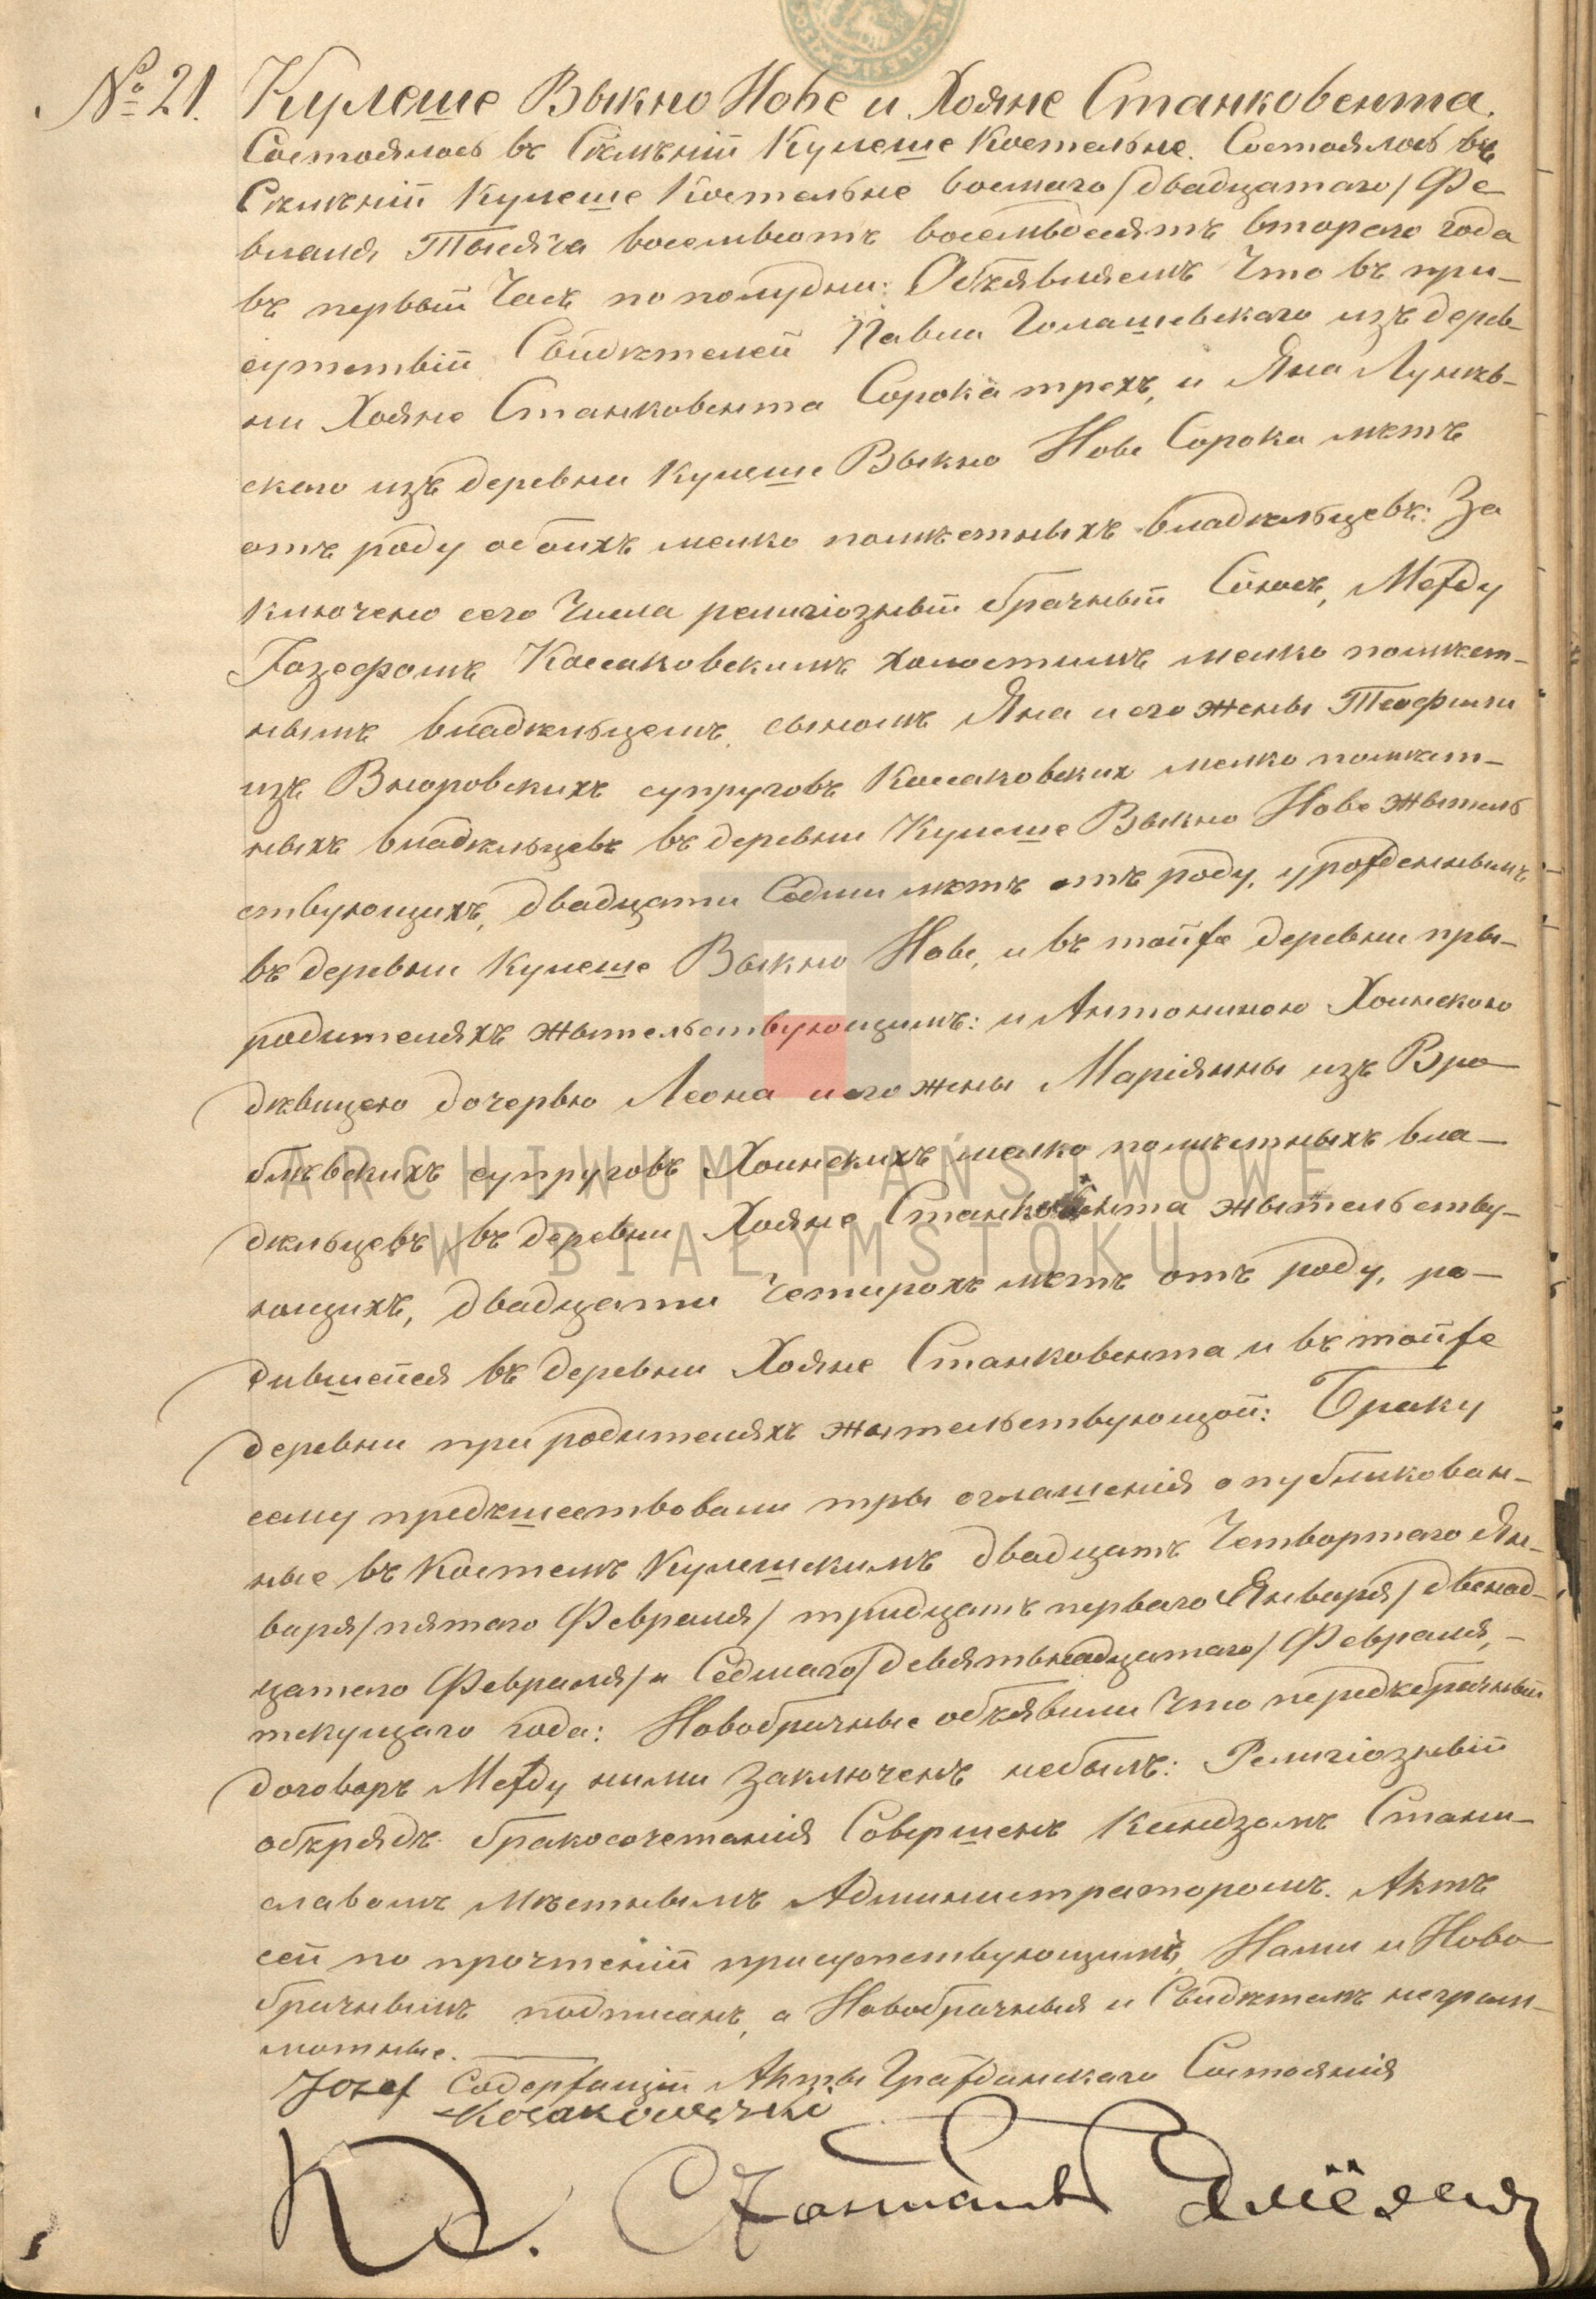 № 21. Кулеше Выкно Нове и Хояне Станковента.
Состоялось въ Селѣнiи Кулеше Костельне. Состоялось въ
Селѣнiи Кулеше Костельне восмаго / двадцатаго / Фе-
враля Тысяча восемьсотъ восемьдесятъ втораго года
въ первый Часъ по полудни: Объявляемъ Что въ при-
сутствiи Свидѣтелей Павла Голашевскаго изъ дерев-
ни Хояне Станковента Сорока трехъ, и Яна Лунев-
скаго изъ деревни Кулеше Выкно Нове Сорока лѣтъ
отъ роду обоихъ мелко помѣстныхъ владѣльцевъ: За
ключено сего Числа религiозный брачный Союзъ, Между
Iозефомъ Коссаковскимъ холостымъ мелко помѣст-
нымъ владѣльцемъ, сыномъ Яна и его жены Теофили
изъ Вноровскихъ супруговъ Коссаковских мелко помѣст-
ныхъ владѣльцевъ въ деревни Кулеше Выкно Нове жытель
ствующихъ, двадцати Седми лѣтъ отъ роду, урожденнымъ
въ деревни Кулеше Выкно Нове, и въ тойже деревни пры-
родителяхъ жытельствующимъ: и Антониною Хоинскою
дѣвицею дочерью Леона и его жены Марiянны изъ Вро-
блѣвскихъ супруговъ Хоинскихъ мелко помѣстныхъ вла-
дѣльцевъ въ деревни Хояне Станковента жытельству-
ющихъ, двадцати Четырохъ лѣтъ отъ роду, ро-
дившейся въ деревни Хояне Станковента и въ тойже
деревни при родителяхъ жытельствующой: Браку
сему предъшествовали тры оглашенiя опубликован-
ные въ Костелѣ Кулешскимъ двадцать Четвортаго Ян-
варя / пятаго Февраля / тридцать перваго Января / двенад-
цатаго Февраля / и Седмаго / девятьнадцатаго / Февраля,-
текущаго года: Новобрачные объявили Что передъбрачный
договоръ Между ними заключенъ небылъ: Религiозный
объряд бракосочетанiя Совершенъ Ксендзомъ Стани-
славомъ Мѣстнымъ Администраторомъ. Актъ
сей по прочтенiи присутствующимъ, Нами и Ново
брачнымъ подписанъ, а Новобрачныя и Свидѣтелѣ неграм-
мотные.
Józef Содержащiй Акты Гражданскаго Состоянiя
Kosakowski